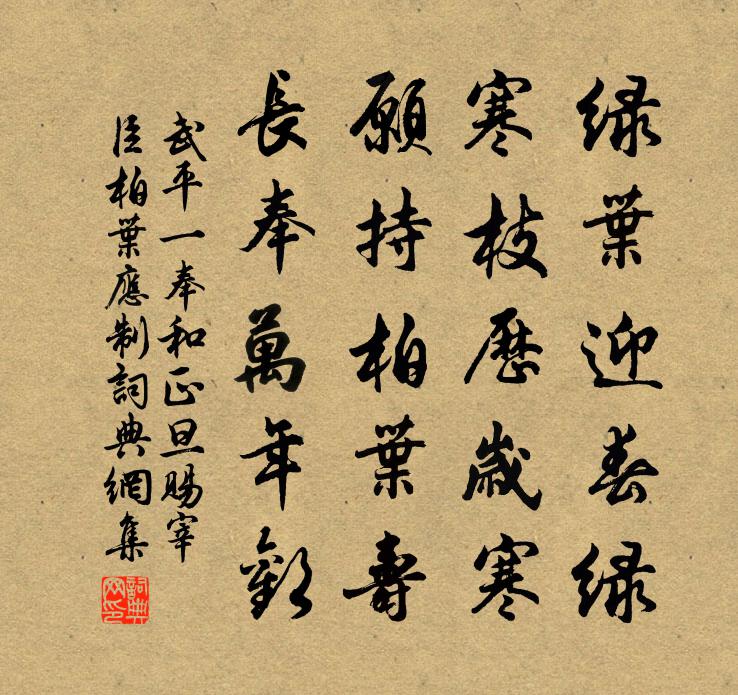 綠葉迎春綠
寒枝歷歲寒
願持柏葉壽
長奉萬年歡
武平一奉和正旦賜宰
臣柏葉應制詞典網集
詞典网印